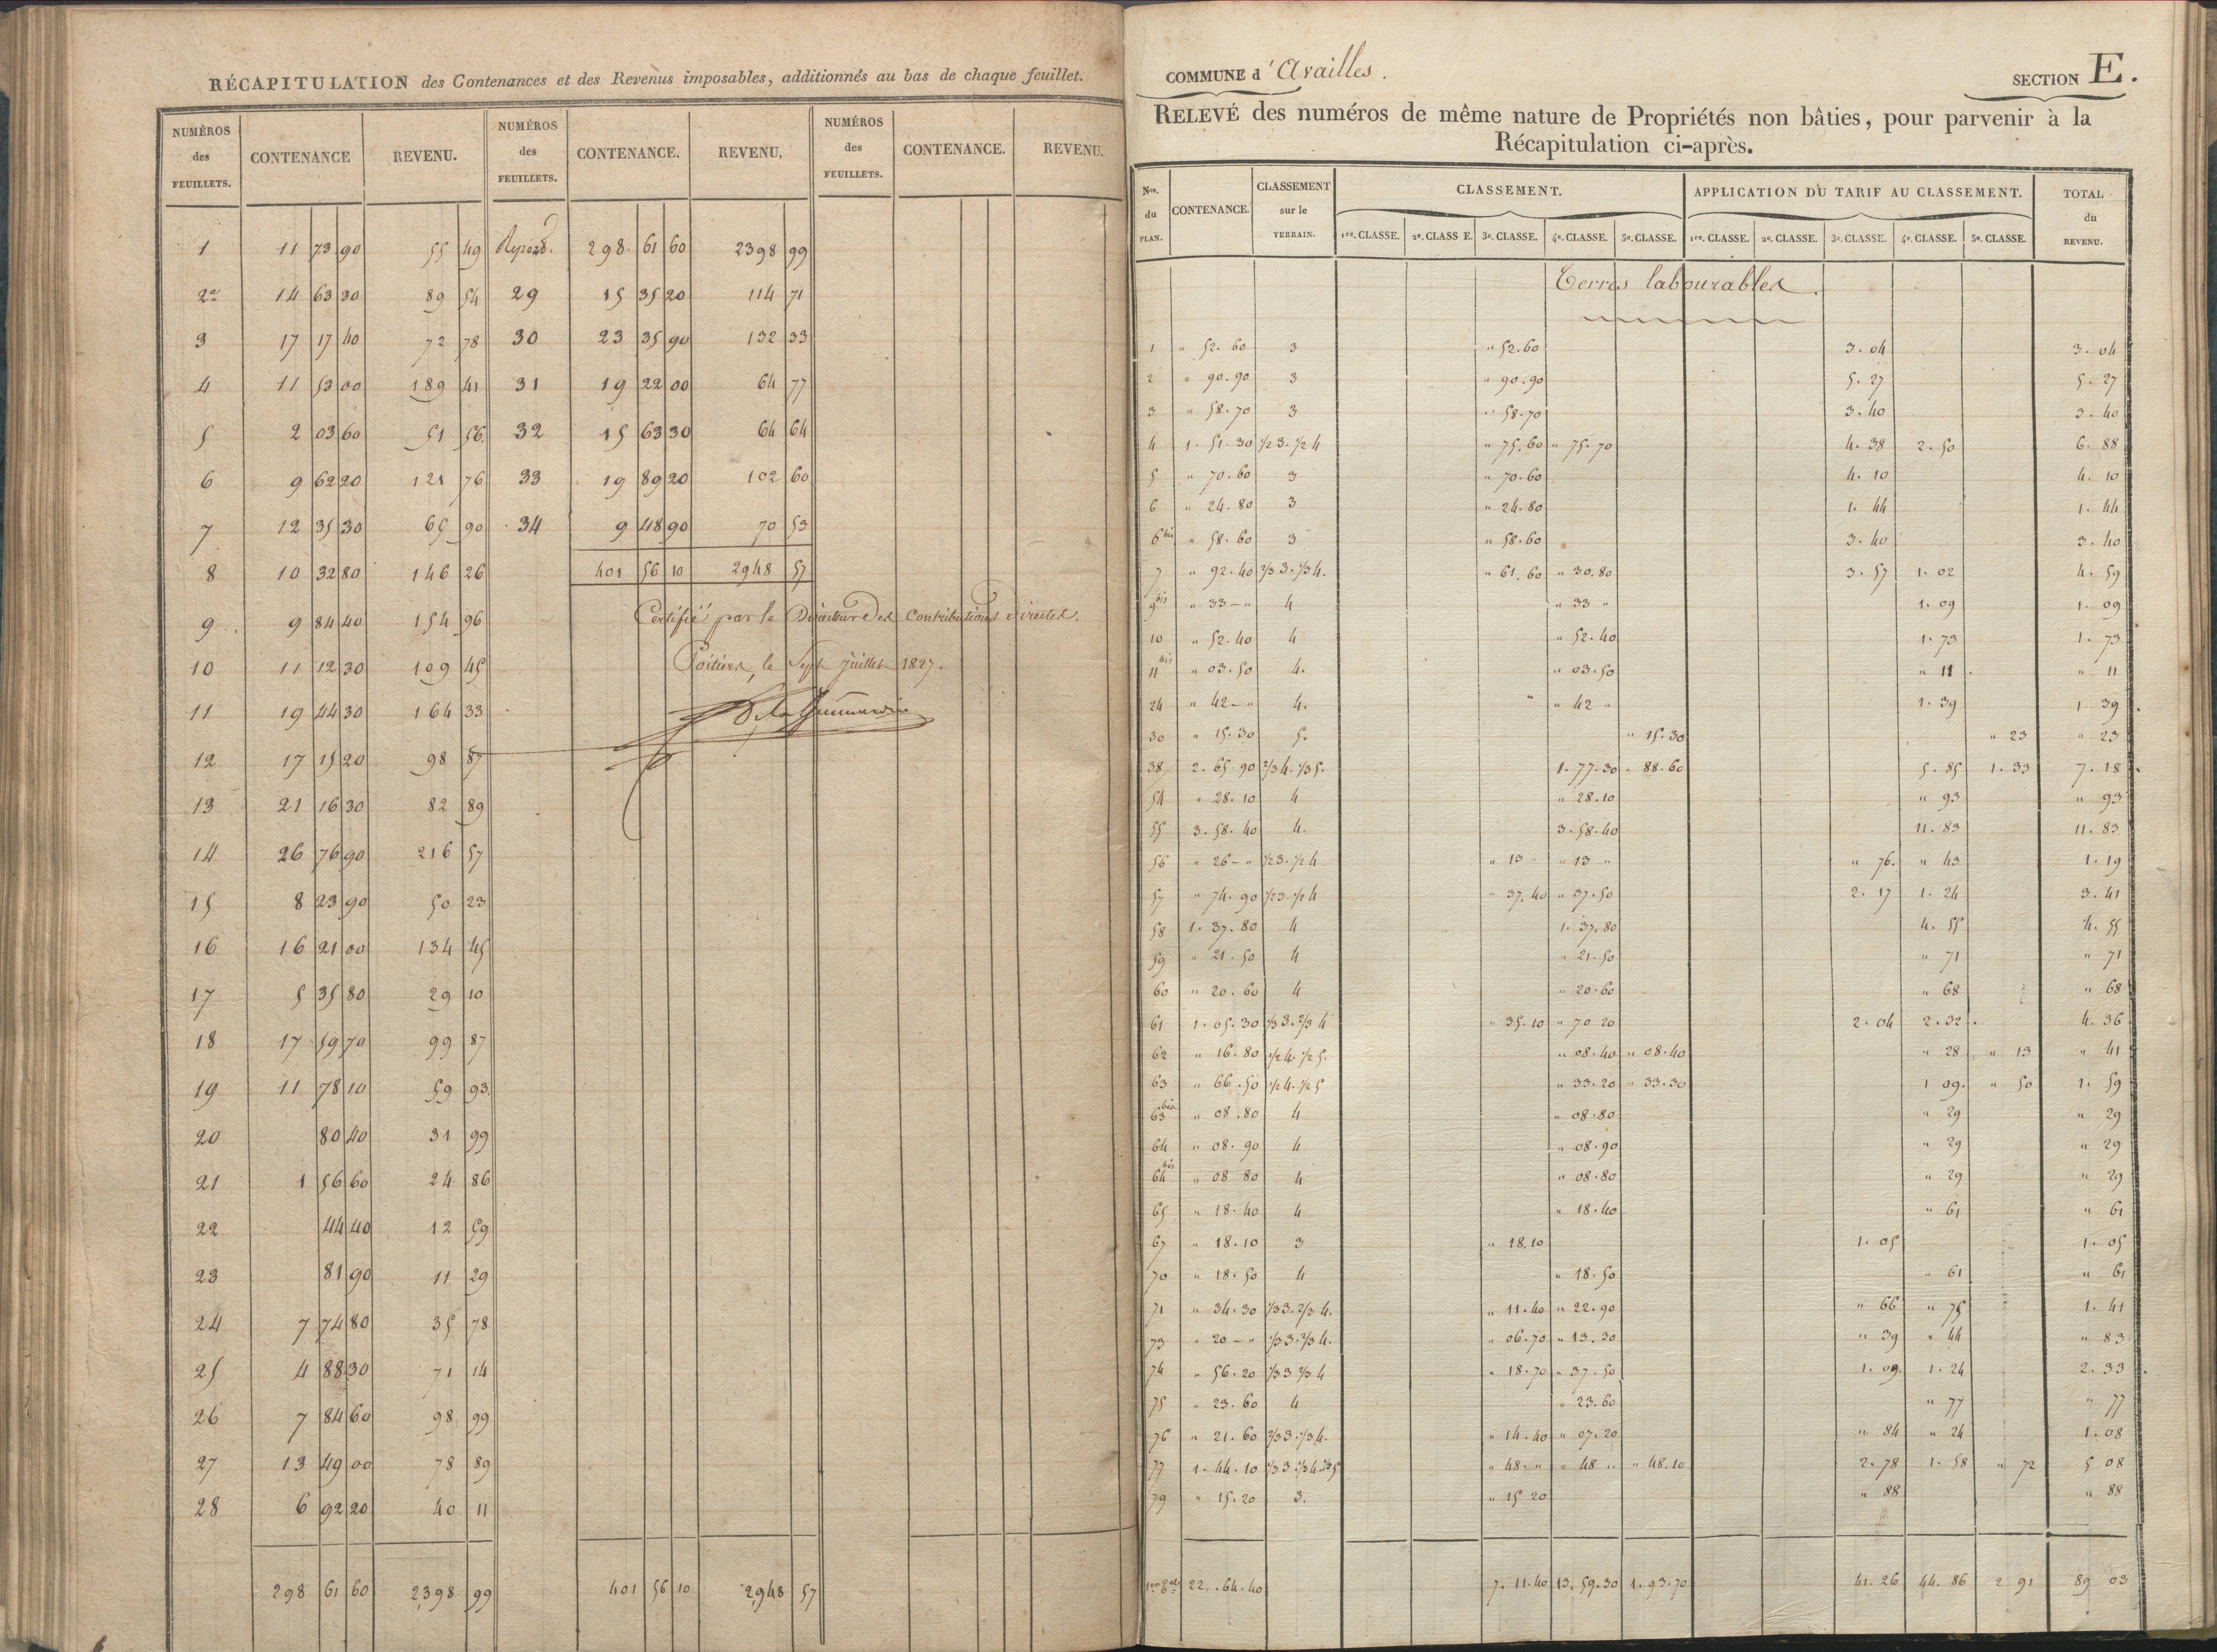 RÉCAPITULATION des Contenances et des Revenus imposables, additionnés au bas de chaque feuillet.
NUMÉROS des FEUILLETS. CONTENANCE REVENU. NUMÉROS des FEUILLETS. CONTENANCE. REVENU, NUMÉROS des FEUILLETS. CONTENANCE. REVENU.
1 11 73 90 55 49 Report. 298. 61 60 2398 99
2 14 63 30 89 54 29 15 35 20 114 71
3 17 17 40 72 78 30 23 35 90 132 33
4 11 53 00 189 41 31 19 22 00 64 77
5 2 03 60 51 56 32 15 63 30 64 64
6 9 62 20 121 76 33 19 89 20 102 60
7 12 35 30 65 90 34 9 48 90 70 53
8 10 32 80 146 26 401 56 10 2948 57
9 9 84 40 154 96 Certifié par le Directeur des Contributions directes.
10 11 12 30 109 45 Poitiers, le Sept Juillet 1827.
11 19 44 30 164 33
12 17 15 20 98 87
13 21 16 30 82 89
14 26 76 90 216 57
15 8 23 90 50 23
16 16 21 00 134 45
17 5 35 80 29 10
18 17 59 70 99 87
19 11 78 10 59 93
20 80 40 31 99
21 1 56 60 24 86
22 44 40 12 59
23 81 90 11 29
24 7 74 80 35 78
25 4 88 30 71 14
26 7 84 60 98 99
27 13 49 00 78 89
28 6 92 20 40 11
298 61 60 2398 99 401 56 10 2948 57
COMMUNE d'Availles. SECTION E.
RELEVÉ des numéros de même nature de Propriétés non bâties, pour parvenir à la
Récapitulation ci-après.
Nos. du PLAN. CONTENANCE. CLASSEMENT sur le TERRAIN. CLASSEMENT. APPLICATION DU TARIF AU CLASSEMENT. TOTAL du REVENU.
1re. CLASSE. 2e. CLASSE. 3e. CLASSE. 4e. CLASSE. 5e. CLASSE. 1re. CLASSE. 2e. CLASSE. 3e. CLASSE. 4e. CLASSE. 5e. CLASSE.
Terres labourables.
1 " 52. 60 3 " 52. 60 3. 04 3. 04
2 " 90. 90 3 " 90. 90 5. 27 5. 27
3 " 58. 70 3 " 58. 70 3. 40 3. 40
4 1. 51. 30 1/2 3. 1/2 4 " 75. 60 " 75. 70 4. 38 2. 50 6. 88
5 " 70. 60 3 " 70. 60 4. 10 4. 10
6 " 24. 80 3 " 24. 80 1. 44 1. 44
6 bis " 58. 60 3 " 58. 60 3. 40 3. 40
7 " 92. 40 2/3 3. 1/3 4. " 61. 60 " 30. 80 3. 57 1. 02 4. 59
9 bis " 33 - " 4 " 33 " 1. 09 1. 09
10 " 52. 40 4 " 52. 40 1. 73 1. 73
11 bis " 03. 50 4. " 03. 50 " 11 " 11
24 " 42 - " 4. " 42 " 1. 39 1. 39
30 " 15. 30 5. " 15. 30 " 23 " 23
38 2. 65. 90 2/3 4. 1/3 5. 1. 77. 30 " 88. 60 5. 85 1. 33 7. 18
54 " 28. 10 4 " 28. 10 " 93 " 93
55 3. 58. 40 4. 3. 58. 40 11. 83 11. 83
56 " 26 - " 1/2 3. 1/2 4 " 13 " " 13 " " 76. " 43 1. 19
57 " 74. 90 1/2 3. 1/2 4 " 37. 40 " 37. 50 2. 17 1. 24 3. 41
58 1. 37. 80 4 1. 37. 80 4. 55 4. 55
59 " 21. 50 4 " 21. 50 " 71 " 71
60 " 20. 60 4 " 20. 60 " 68 " 68
61 1. 05. 30 1/3 3. 2/3 4 " 35. 10 " 70 20 2. 04 2. 32 4. 36
62 " 16. 80 1/2 4. 1/2 5. " 08. 40 " 08. 40 " 28 " 13 " 41
63 " 66. 50 1/2 4. 1/2 5 " 33. 20 " 33. 30 1 09. " 50 1. 59
63 bis " 08. 80 4 " 08. 80 " 29 " 29
64 " 08. 90 4 " 08. 90 " 29 " 29
64 bis " 08 80 4 " 08. 80 " 29 " 29
65 " 18. 40 4 " 18. 40 " 61 " 61
67 " 18. 10 3 " 18. 10 1. 05 1. 05
70 " 18. 50 4 " 18. 50 " 61 " 61
71 " 34. 30 1/3 3. 2/3 4. " 11. 40 " 22. 90 " 66 " 75 1. 41
73 " 20 - " 1/3 3. 2/3 4. " 06. 70 " 13. 30 " 39 " 44 " 83
74 " 56. 20 1/3 3 2/3 4 " 18. 70 " 37. 50 1. 09. 1. 24 2. 33
75 " 23. 60 4 " 23. 60 " 77 " 77
76 " 21. 60 2/3 3. 1/3 4. " 14. 40 " 07. 20 " 84 " 24 1. 08
77 1. 44. 10 1/3 3 1/3 4 1/3 5 " 48. " " 48 " " 48. 10 2. 78 1. 58 " 72 5 08
79 " 15. 20 3. " 15 20 " 88 " 88
22. 64. 40 7. 11. 40 13. 59. 30 1. 93. 70 41. 26 44. 86 2 91 89 03